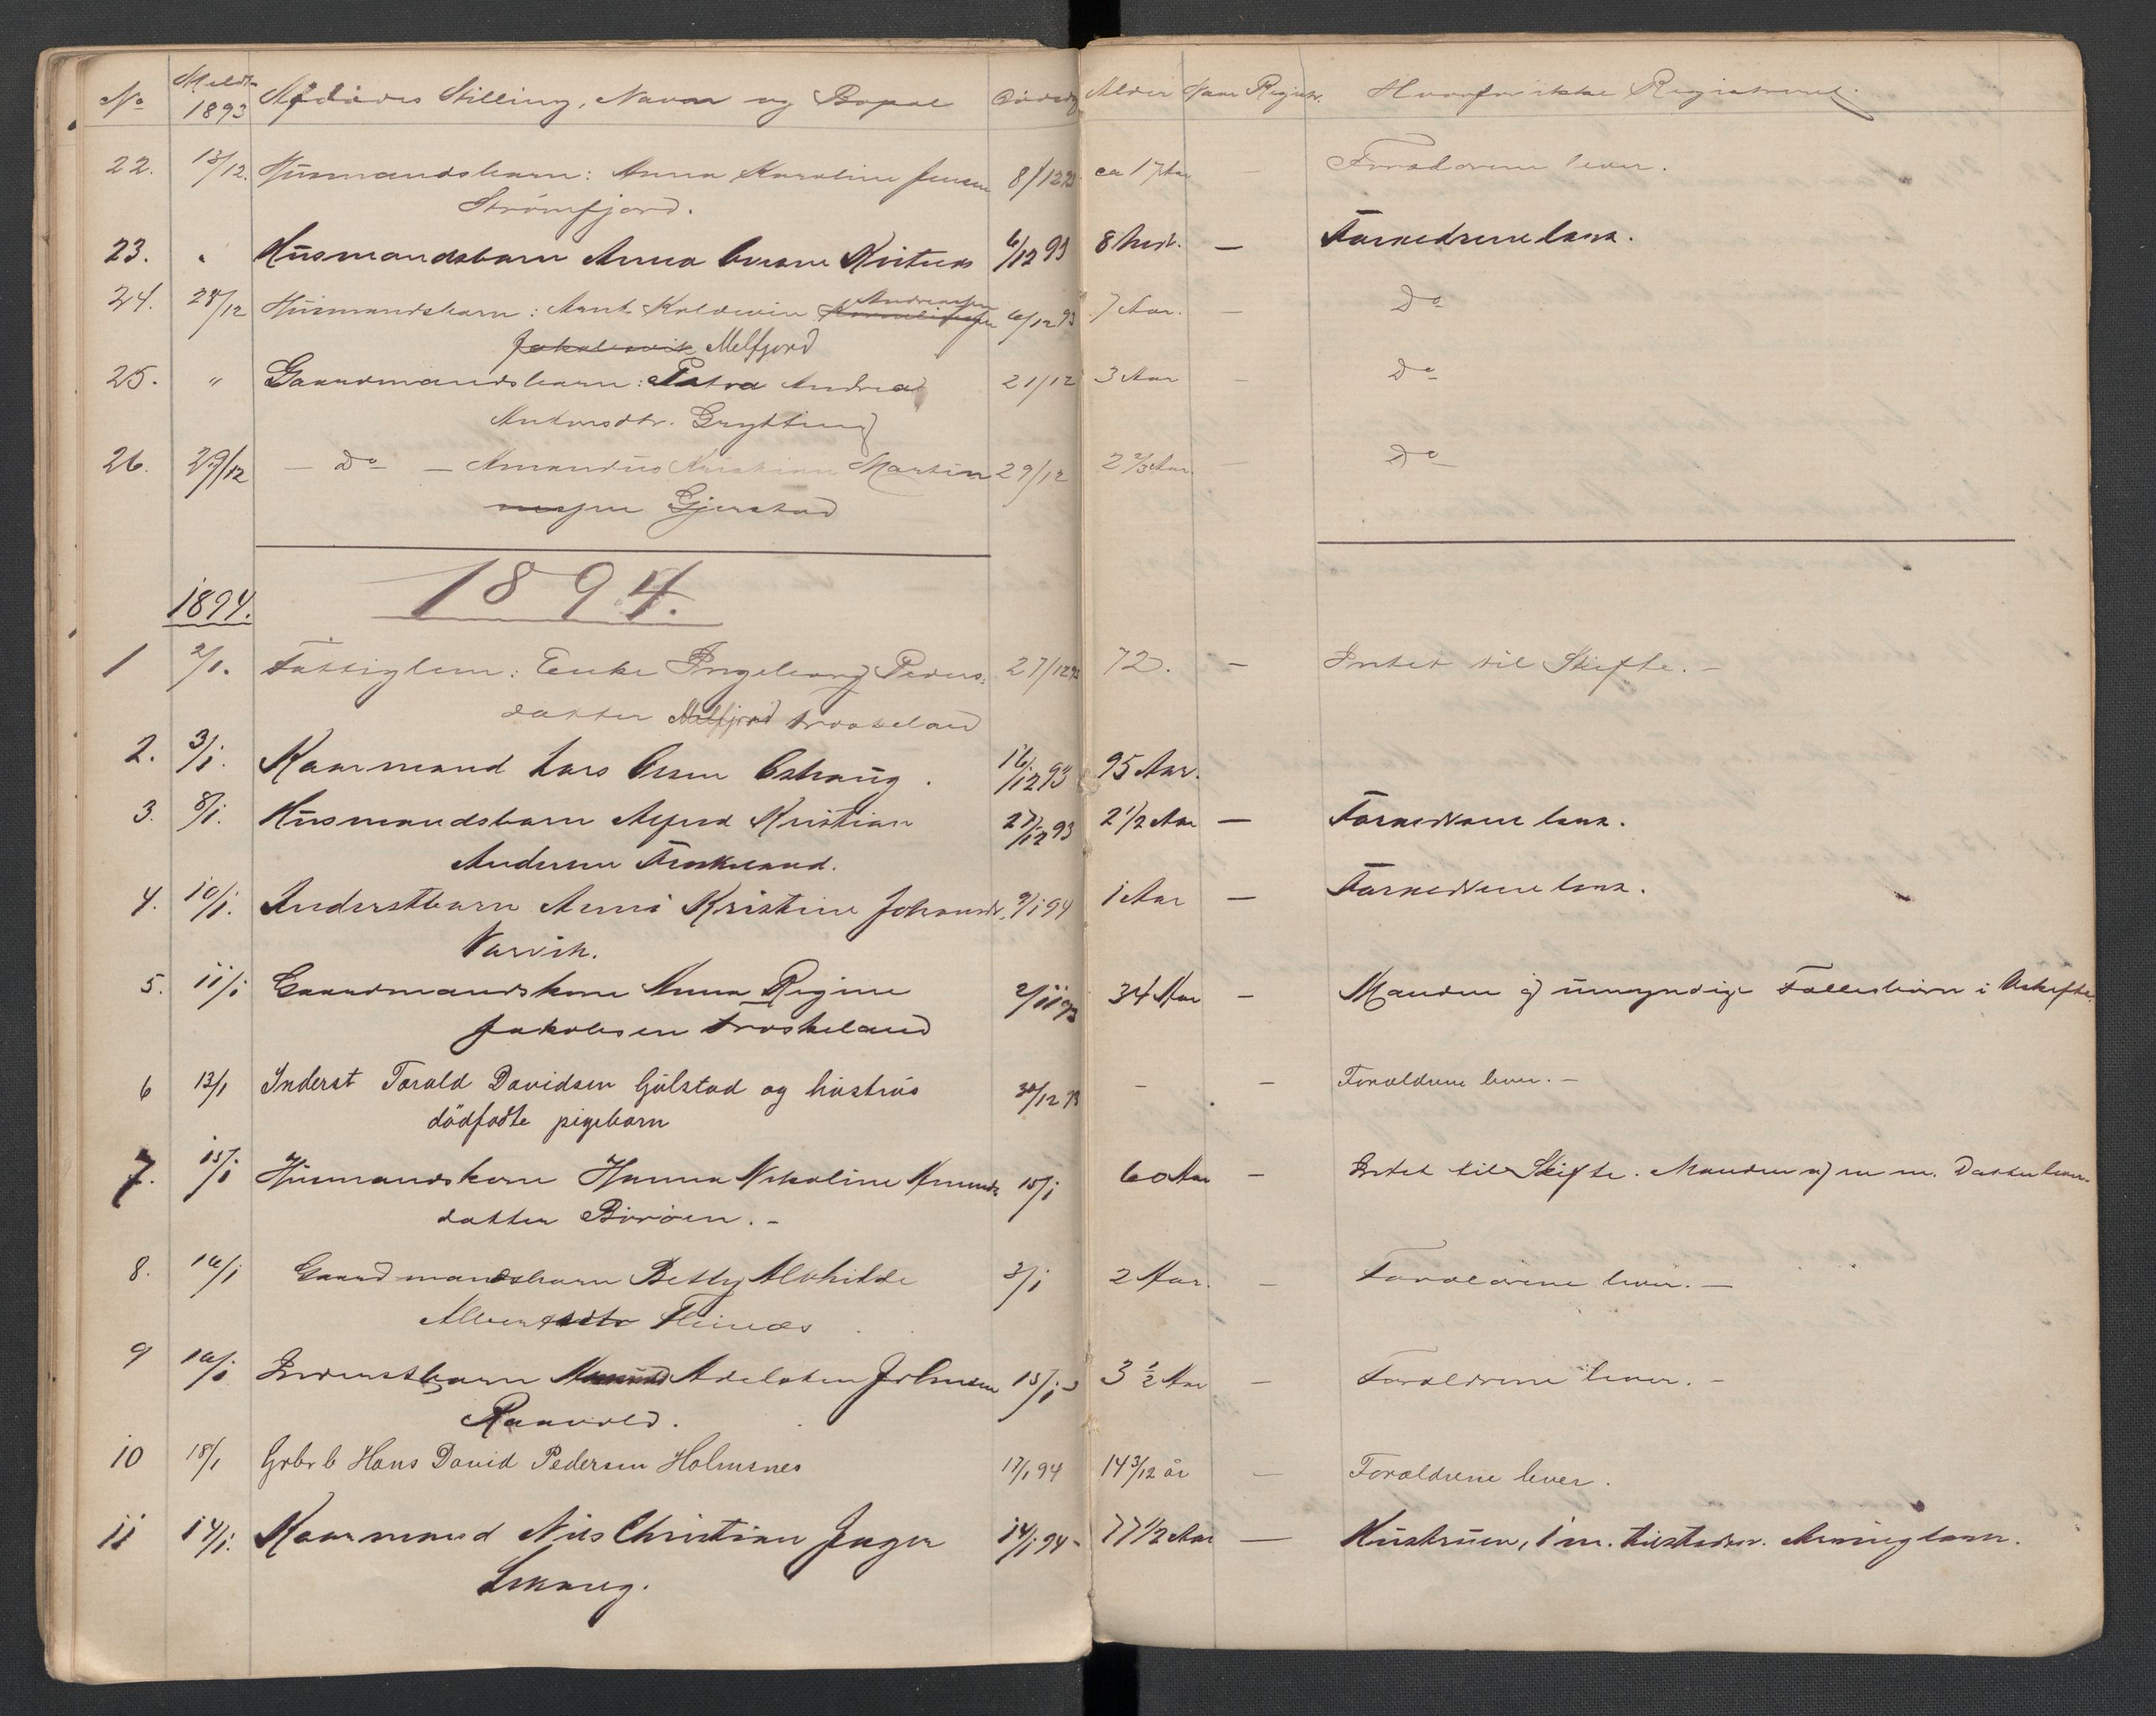 No Meldt 1893 Afdødes Stilling, Navn og Bopæl Dødsdag Alder Naar Registr. Hvorfor ikke Registreret.
22. 13/12. Husmandsbarn: Anna Karoline Jensen 8/12 93 ca 17 Aar — Forældrene lever.
Strömfjord.
23. " Husmandsbarn Anna 6/12 93 8 — Forældrene lever.
24. 28/12 Husmandsbarn: Arnt Koldevin Andreassen 6/12 93 7 Aar. — Do
Jakobsvik Melfjord
25. " Gaardmandsbarn: Petra Andrea 21/12 3 Aar — Do
Antonsdtr. Grytting
26. 29/12 — Do — Amandus Kristian Martin 29/12 2 2/3 Aar. — Do
Gjerstad
1894. 1894.
1 2/1. Fattiglem: Enke Ingeborg Peders: 27/12 93 72. — Intet til Skifte. —
datter Melfjord Froskeland
2. 3/1. Kaarmand Lars Olsen 16/12 93 95 Aar.
3. 8/1. Husmandsbarn Alfred Kristian 27/12 93 2 1/2 Aar — Forældrene lever.
Andersen Froskeland.
4. 10/1. Inderstbarn Anna Kristine Johansdr. 9/1 94 1 Aar — Forældrene lever.
Varvik.
5. 11/1 Gaardmandskone Anna Regine 2/11 93 34 Aar — Manden og umyndige Fællesbörn i Uskifte.
Jakobsen Froskeland
6 13/1 Inderst Torald Davidsen Gulstad og hustrus 30/12 93 — — Forældrene lever. —
dödfødte pigebarn
7. 15/1 Husmandskone Hanna Nikoline Amunds 10/1 60 Aar — Intet til Skifte. Manden og en m. Datter lever.
datter Böröen. —
8. 16/1 Gaardmandsbarn Betty Mathilde 3/1 2 Aar. — Forældrene lever. —
Albertsdtr
9 16/1 Inderstbarn Adelsten Johnsen 15/1 3 1/2 Aar — Forældrene lever. —
Raavold.
10 18/1 Grbr b Hans David Pedersen Holmsnes 17/1 94 14 3/12 år — Forældrene lever.
11 14/1. Kaarmand Nils Christian Jager 14/1 94 — 77 1/2 Aar — Hustruen, 1 m.